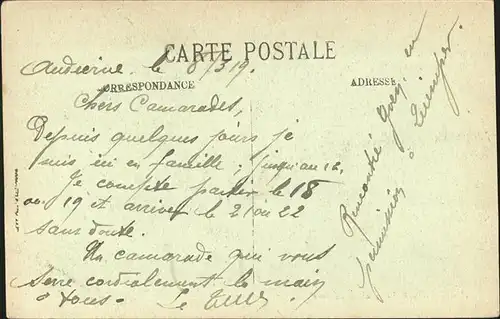 CARTE POSTALE
Audierne le 8/3/19.
CORRESPONDANCE
ADRESSE
Chers Camarades,
Depuis quelques jours je
suis ici en famille, jusqu'au 18.
Je compte partir le 18
ou 19 et arriver le 21 ou 22
sans doute.
Un camarade qui vous
serre cordialement la main
à tous. Le
Rencontré en
permission à Quimper.